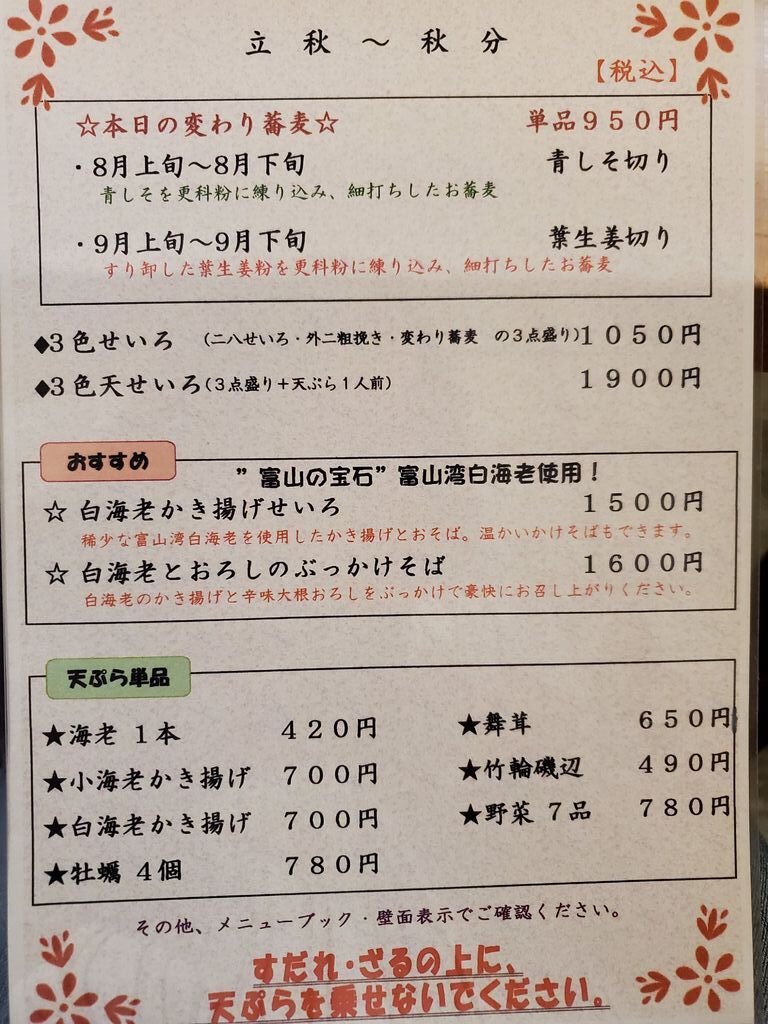 立秋～秋分
【税込】
☆本日の変わり蕎麦☆ 単品９５０円
・8月上旬～8月下旬 青しそ切り
青しそを更科粉に練り込み、細打ちしたお蕎麦
・9月上旬～9月下旬 葉生姜切り
すり卸した葉生姜粉を更科粉に練り込み、細打ちしたお蕎麦
◆3色せいろ （二八せいろ・外二粗挽き・変わり蕎麦 の３点盛り）１０５０円
◆3色天せいろ（３点盛り＋天ぷら１人前） １９００円
おすすめ
”富山の宝石”富山湾白海老使用！
☆ 白海老かき揚げせいろ １５００円
稀少な富山湾白海老を使用したかき揚げとおそば。温かいかけそばもできます。
☆ 白海老とおろしのぶっかけそば １６００円
白海老のかき揚げと辛味大根おろしをぶっかけで豪快にお召し上がりください。
天ぷら単品
★海老 １本 ４２０円 ★舞茸 ６５０円
★小海老かき揚げ ７００円 ★竹輪磯辺 ４９０円
★白海老かき揚げ ７００円 ★野菜 ７品 ７８０円
★牡蠣 ４個 ７８０円
その他、メニューブック・壁面表示でご確認ください。
すだれ・ざるの上に、
天ぷらを乗せないでください。